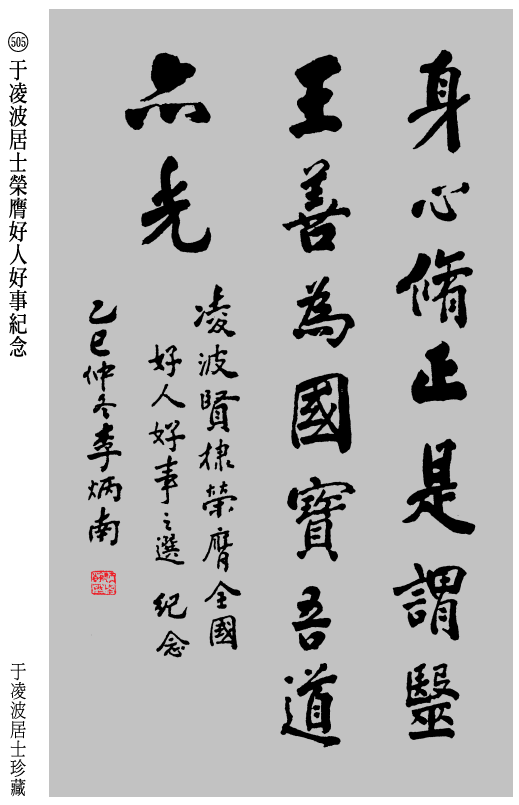 身心脩正是謂毉
王善為國寶吾道
亦光
凌波賢棣榮膺全國
好人好事之選 紀念
乙巳仲冬李炳南
505 于凌波居士榮膺好人好事紀念
于凌波居士珍藏